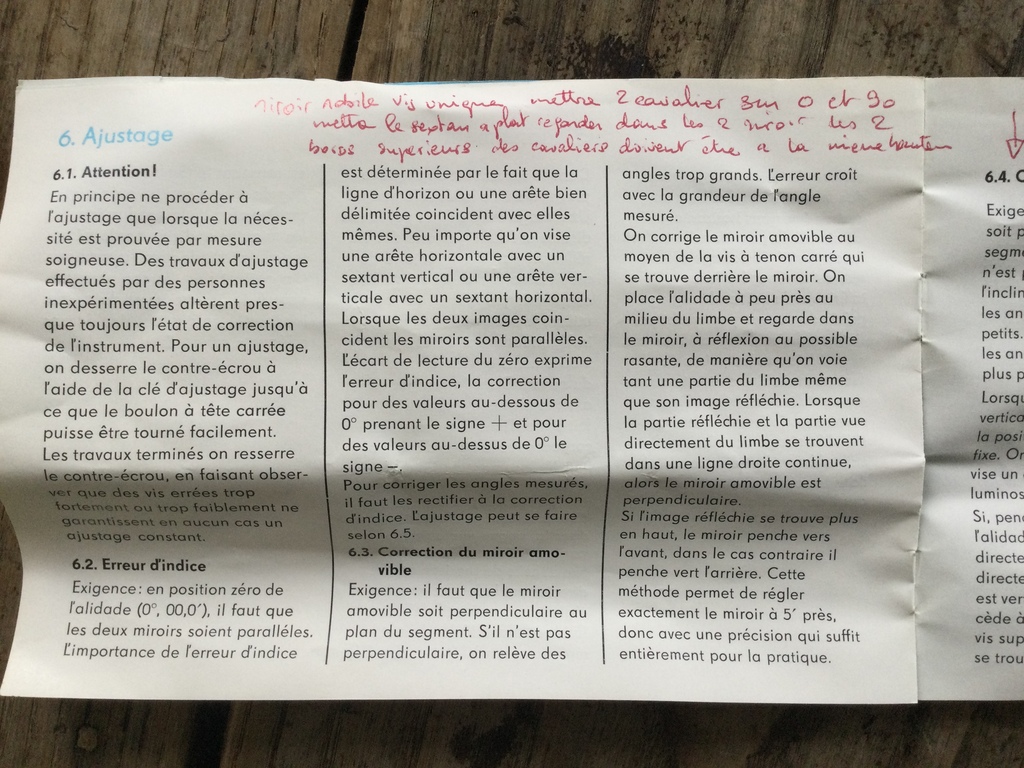 miroir mobile vis unique, mettre 2 cavalier sur 0 et 90
mettre le sextan a plat regarder dans les 2 miroir les 2
bords superieurs des cavaliers doivent être a la meme hauteur
6. Ajustage
6.1. Attention!
En principe ne procéder à
l'ajustage que lorsque la néces-
sité est prouvée par mesure
soigneuse. Des travaux d'ajustage
effectués par des personnes
inexpérimentées altèrent pres-
que toujours l'état de correction
de l'instrument. Pour un ajustage,
on desserre le contre-écrou à
l'aide de la clé d'ajustage jusqu'à
ce que le boulon à tête carrée
puisse être tourné facilement.
Les travaux terminés on resserre
le contre-écrou, en faisant obser-
ver que des vis errées trop
fortement ou trop faiblement ne
garantissent en aucun cas un
ajustage constant.
6.2. Erreur d'indice
Exigence: en position zéro de
l'alidade (0°, 00,0′), il faut que
les deux miroirs soient paralléles.
L'importance de l'erreur d'indice
est déterminée par le fait que la
ligne d'horizon ou une arête bien
délimitée coincident avec elles
mêmes. Peu importe qu'on vise
une arête horizontale avec un
sextant vertical ou une arête ver-
ticale avec un sextant horizontal.
Lorsque les deux images coin-
cident les miroirs sont parallèles.
L'écart de lecture du zéro exprime
l'erreur d'indice, la correction
pour des valeurs au-dessous de
0° prenant le signe + et pour
des valeurs au-dessus de 0° le
signe –.
Pour corriger les angles mesurés,
il faut les rectifier à la correction
d'indice. L'ajustage peut se faire
selon 6.5.
6.3. Correction du miroir amo-
vible
Exigence: il faut que le miroir
amovible soit perpendiculaire au
plan du segment. S'il n'est pas
perpendiculaire, on relève des
angles trop grands. L'erreur croît
avec la grandeur de l'angle
mesuré.
On corrige le miroir amovible au
moyen de la vis à tenon carré qui
se trouve derrière le miroir. On
place l'alidade à peu près au
milieu du limbe et regarde dans
le miroir, à réflexion au possible
rasante, de manière qu'on voie
tant une partie du limbe même
que son image réfléchie. Lorsque
la partie réfléchie et la partie vue
directement du limbe se trouvent
dans une ligne droite continue,
alors le miroir amovible est
perpendiculaire.
Si l'image réfléchie se trouve plus
en haut, le miroir penche vers
l'avant, dans le cas contraire il
penche vert l'arrière. Cette
méthode permet de régler
exactement le miroir à 5′ près,
donc avec une précision qui suffit
entièrement pour la pratique.
6.4. C
Exige
soit p
segme
n'est p
l'inclin
les an
petits.
les an
plus p
Lorsqu
vertica
la posi
fixe. On
vise un
luminos
Si, pend
l'alidad
directe
directe
est ver
cède à
vis sup
se trou